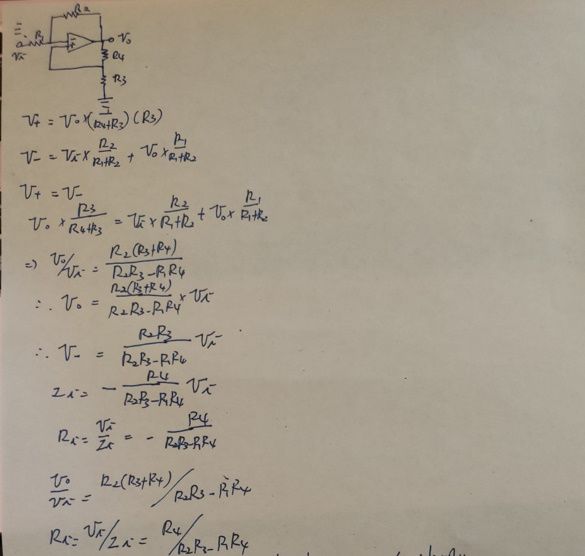 R2
ii
R1
Vi
Vo
R4
R3
V+ = Vo×(1/R4+R3)(R3)
V- = Vi×R2/R1+R2 + Vo×R1/R1+R2
V+ = V-
Vo × R3/R4+R3 = Vi×R2/R1+R2 + Vo×R1/R1+R2
=> Vo/Vi = R2(R3+R4)/R2R3-R1R4
∴ Vo = R2(R3+R4)/R2R3-R1R4 × Vi
∴ V- = R2R3/R2R3-R1R4 Vi
ii = - R4/R2R3-R1R4 Vi
Ri = Vi/ii = - R4/R2R3-R1R4
Vo/Vi = R2(R3+R4)/R2R3-R1R4
Ri = Vi/ii = R4/R2R3-R1R4